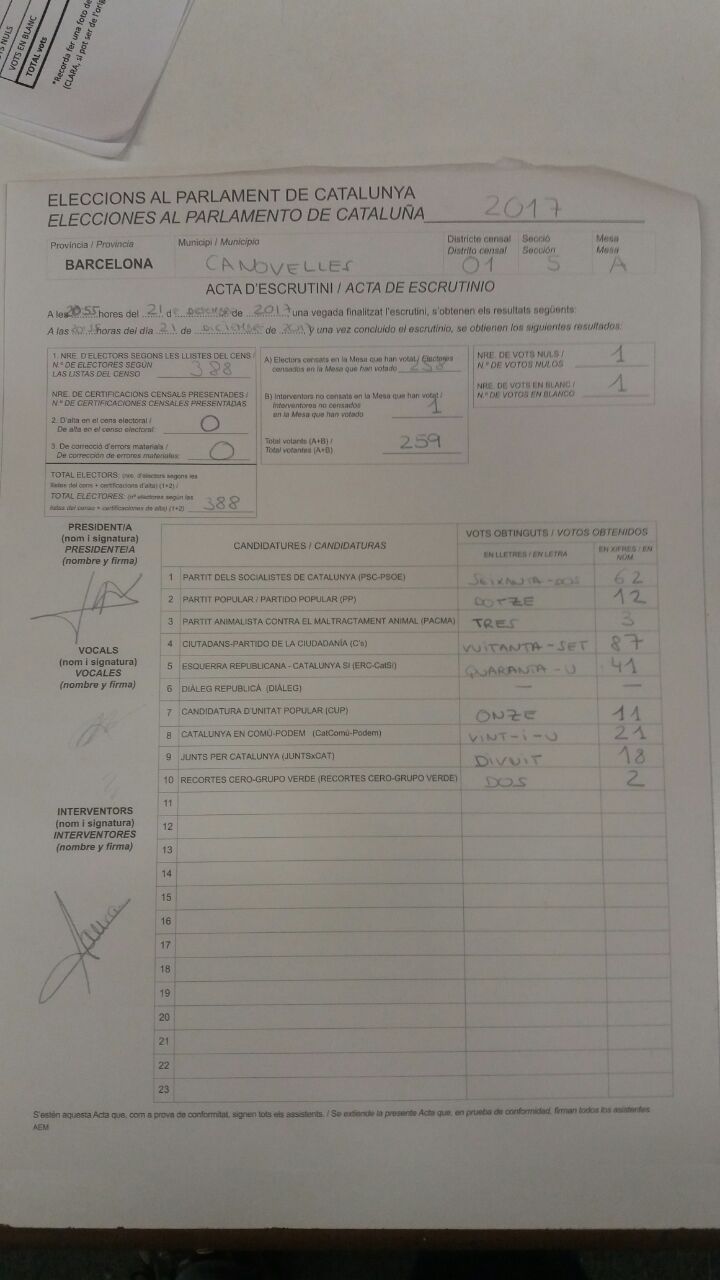 TS NULS
VOTS EN BLANC
TOTAL vots
*Recorda fer una foto de
(CLARA, si pot ser de l'orig
ELECCIONS AL PARLAMENT DE CATALUNYA
ELECCIONES AL PARLAMENTO DE CATALUÑA 2017
Província / Provincia Municipi / Municipio Districte censal Secció Mesa
Distrito censal Sección Mesa
BARCELONA CANOVELLES 01 5 A
ACTA D'ESCRUTINI / ACTA DE ESCRUTINIO
A les 20:55 hores del 21 de DICIEMBRE de 2017, una vegada finalitzat l'escrutini, s'obtenen els resultats següents:
A las horas del día 21 de DICIEMBRE de 2017 y una vez concluido el escrutinio, se obtienen los siguientes resultados:
1. NRE. D'ELECTORS SEGONS LES LLISTES DEL CENS /
N.º DE ELECTORES SEGÚN
LAS LISTAS DEL CENSO 388
NRE. DE CERTIFICACIONS CENSALS PRESENTADES /
N.º DE CERTIFICACIONES CENSALES PRESENTADAS
2. D'alta en el cens electoral /
De alta en el censo electoral: 0
3. De correcció d'errors materials /
De corrección de errores materiales: 0
TOTAL ELECTORS: (nre. d'electors segons les
llistes del cens + certificacions d'alta) (1+2) /
TOTAL ELECTORES: (nº electores según las
listas del censo + certificaciones de alta) (1+2) 388
A) Electors censats en la Mesa que han votat / Electores
censados en la Mesa que han votado 258
B) Interventors no censats en la Mesa que han votat /
Interventores no censados
en la Mesa que han votado 1
Total votants (A+B) /
Total votantes (A+B) 259
NRE. DE VOTS NULS /
N.º DE VOTOS NULOS 1
NRE. DE VOTS EN BLANC /
N.º DE VOTOS EN BLANCO 1
PRESIDENT/A
(nom i signatura)
PRESIDENTE/A
(nombre y firma)
VOCALS
(nom i signatura)
VOCALES
(nombre y firma)
INTERVENTORS
(nom i signatura)
INTERVENTORES
(nombre y firma)
CANDIDATURES / CANDIDATURAS VOTS OBTINGUTS / VOTOS OBTENIDOS
EN LLETRES / EN LETRA EN XIFRES / EN NÚM.
1 PARTIT DELS SOCIALISTES DE CATALUNYA (PSC-PSOE) SEIXANTA-DOS 62
2 PARTIT POPULAR / PARTIDO POPULAR (PP) DOTZE 12
3 PARTIT ANIMALISTA CONTRA EL MALTRACTAMENT ANIMAL (PACMA) TRES 3
4 CIUTADANS-PARTIDO DE LA CIUDADANÍA (C's) VUITANTA-SET 87
5 ESQUERRA REPUBLICANA - CATALUNYA SÍ (ERC-CatSí) QUARANTA-U 41
6 DIÀLEG REPUBLICÀ (DIÀLEG) — —
7 CANDIDATURA D'UNITAT POPULAR (CUP) ONZE 11
8 CATALUNYA EN COMÚ-PODEM (CatComú-Podem) VINT-I-U 21
9 JUNTS PER CATALUNYA (JUNTSxCAT) DIVUIT 18
10 RECORTES CERO-GRUPO VERDE (RECORTES CERO-GRUPO VERDE) DOS 2
11
12
13
14
15
16
17
18
19
20
21
22
23
S'estén aquesta Acta que, com a prova de conformitat, signen tots els assistents. / Se extiende la presente Acta que, en prueba de conformidad, firman todos los asistentes.
AEM